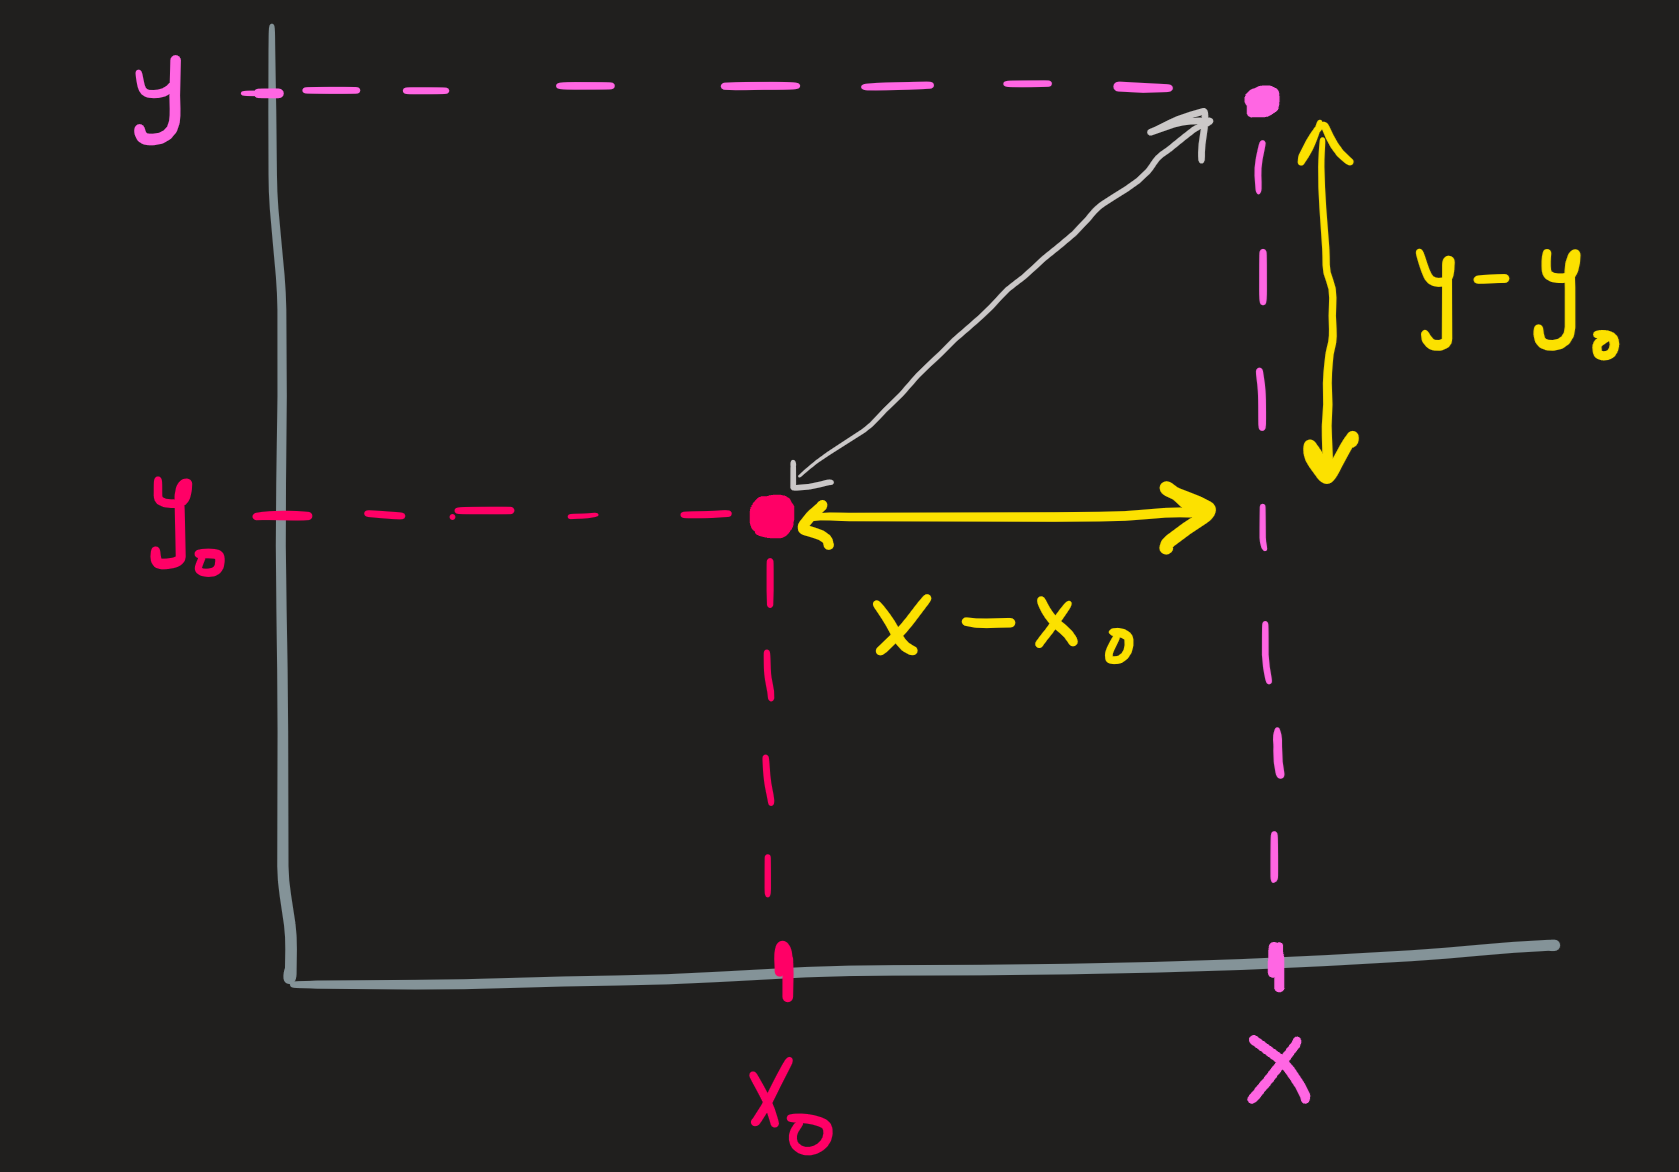 y
y - y₀
y₀
x - x₀
x₀
x